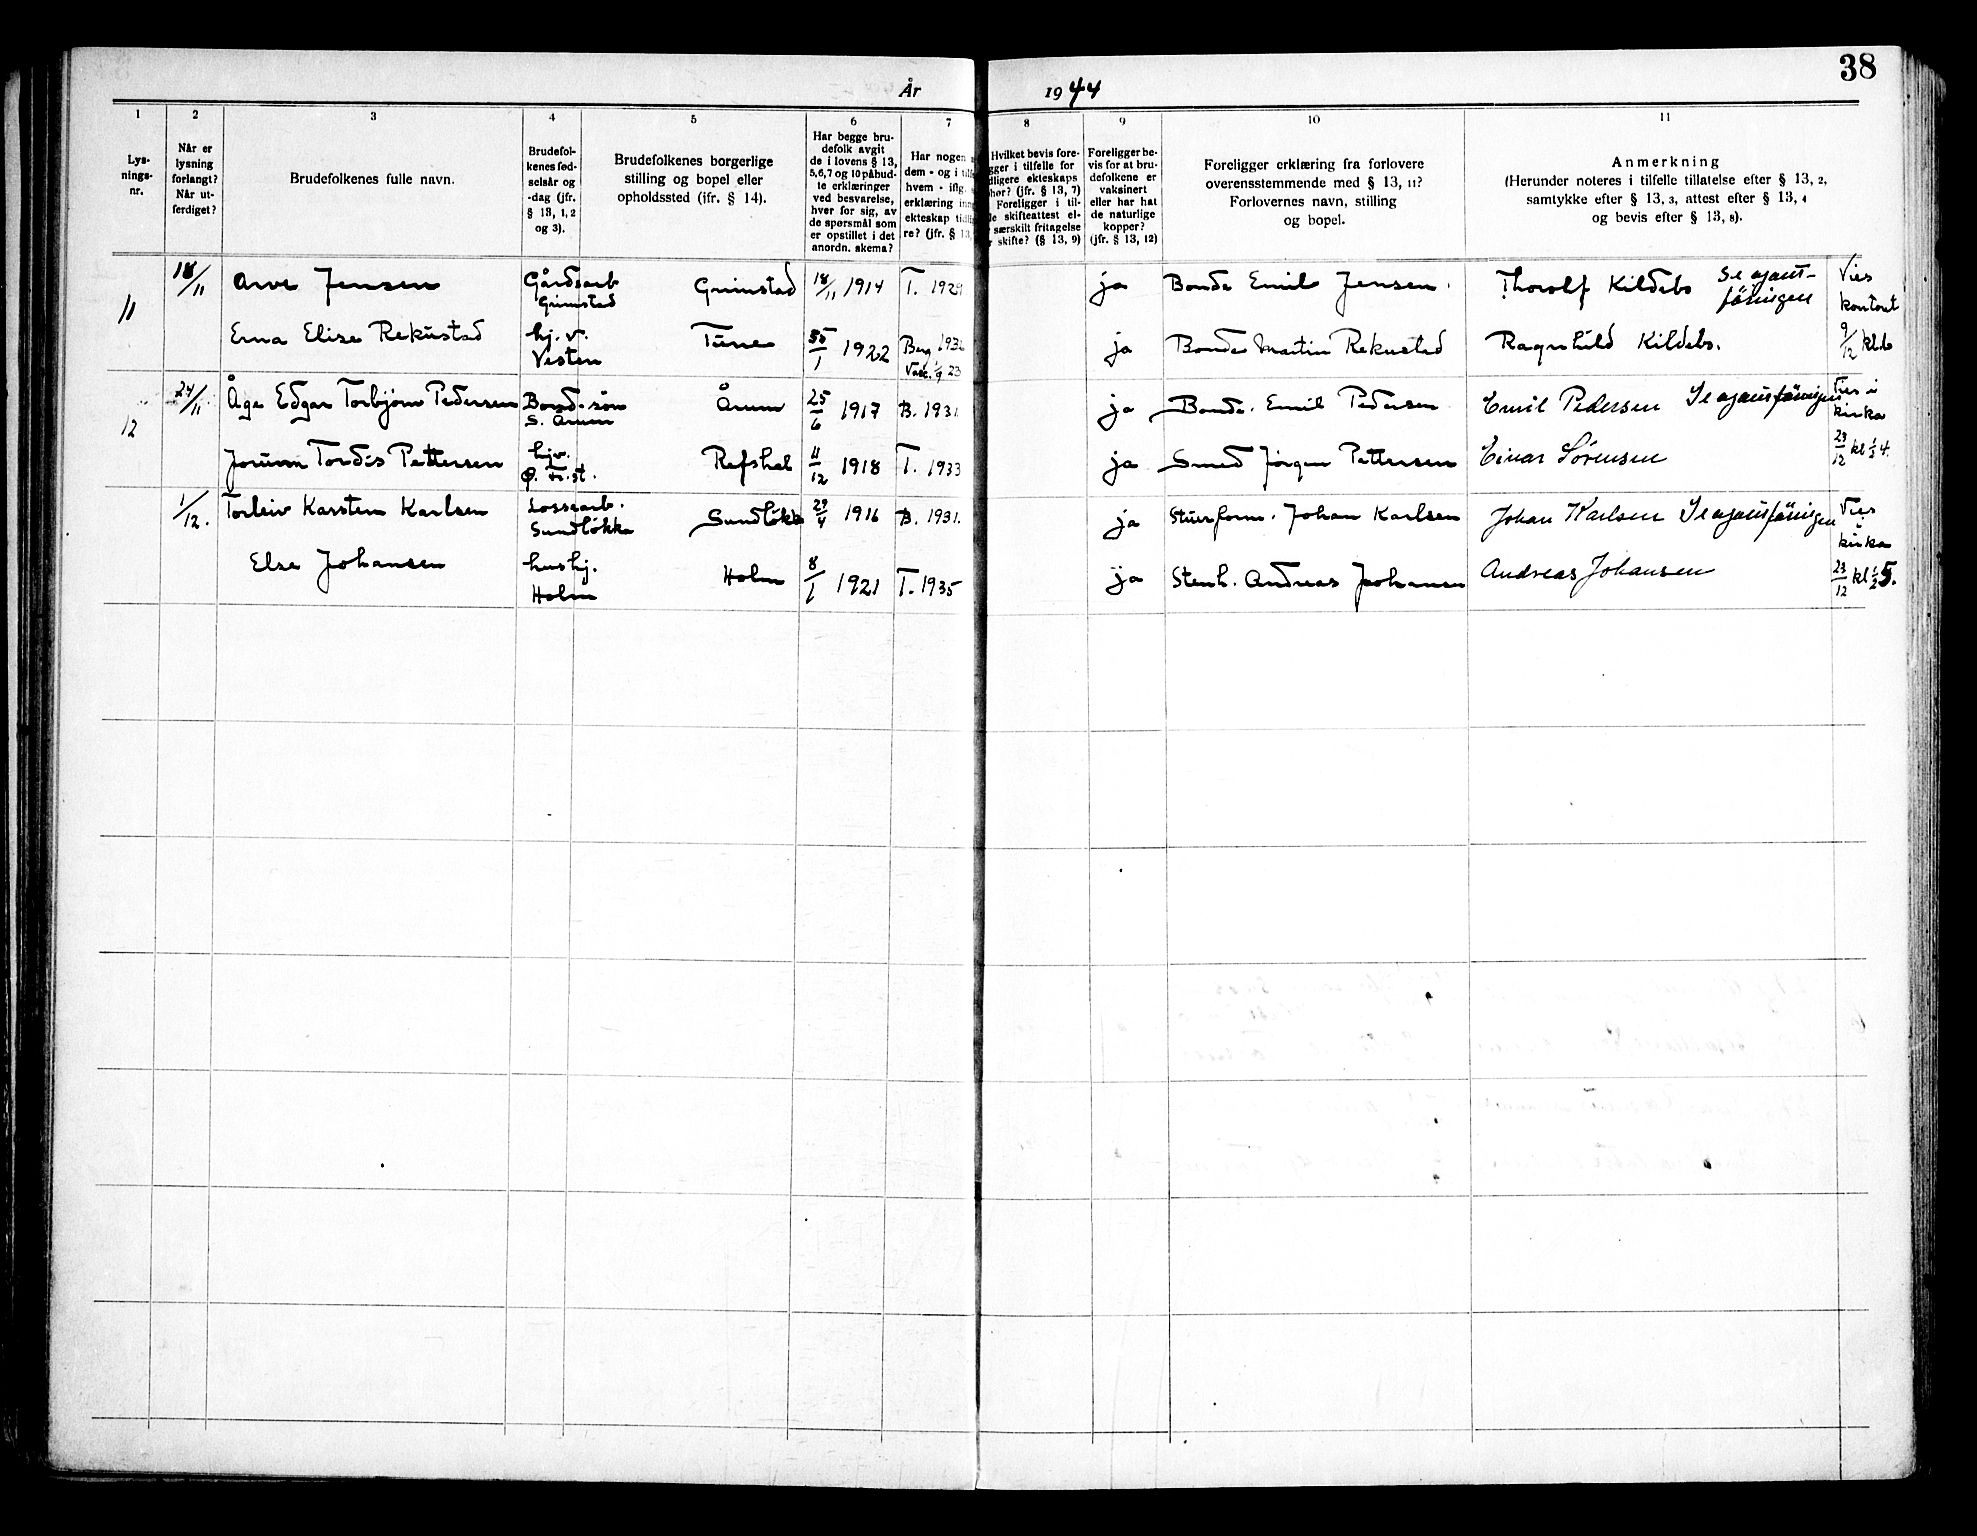 38
År 1944
1 2 3 4 5 6 7 8 9 10 11
Lys-
nings-
nr.
Når er
lysning
forlangt?
Når ut-
ferdiget?
Brudefolkenes fulle navn.
Brudefol-
kenes fød-
selsår og
-dag (jfr.
§ 13, 1, 2
og 3).
Brudefolkenes borgerlige
stilling og bopel eller
opholdssted (jfr. § 14).
Har begge bru-
defolk avgit
de i lovens § 13,
5,6,7 og 10 påbud-
te erklæringer
ved besvarelse,
hver for sig, av
de spørsmål som
er opstillet i det
anordn. skema?
Har nogen
dem - og i
hvem - iflg.
erklæring
ekteskap
re? (jfr. § 13,
Hvilket bevis fore-
gger i tilfelle for
dligere ekteskaps
hør? (jfr. § 13, 7)
Foreligger i til-
le skifteattest el-
særskilt fritagelse
skifte? (§ 13, 9)
Foreligger be-
vis for at bru-
defolkene er
vaksinert
eller har hat
de naturlige
kopper?
(jfr. § 13, 12)
Foreligger erklæring fra forlovere
overensstemmende med § 13, 11?
Forlovernes navn, stilling
og bopel.
Anmerkning
(Herunder noteres i tilfelle tillatelse efter § 13, 2,
samtykke efter § 13, 3, attest efter § 13, 4
og bevis efter § 13, 8).
11 18/11 Arve Jensen Gårdsarb Grimstad Grimstad 18/11 1914 T. 1929 ja Bonde Emil Jensen. Thorolf Kildebo Vies
kontoret
Erna Elise Rekustad hj. v. Vesten Tune 1 1922 Berg Vakc. ja Bonde Martin Rekustad Ragnhild Kildebo. 9/12 kl.
12 24/11 Åge Edgar Torbjørn Pedersen Bondesøn S. Årum Årum 25/6 1917 B. 1931. ja Bonde. Emil Pedersen Emil Pedersen Vies i
kirka
Jorunn Tordis Pettersen hjv. Refshal 11/12 1918 T. 1933 ja Smed Jørgen Pettersen Einar Sørensen 23/12 kl ½ 4.
1/12. Torleiv Karsten Karlsen Lossearb. Sundløkka Sundløkka 29/4 1916 B. 1931. ja Johan Karlsen Johan Karlsen Vies
kirka
Else Johansen hushj. Holm Holm 8/1 1921 T. 1935 ja Stenh. Andreas Johansen Andreas Johansen 23/12 kl ½ 5.